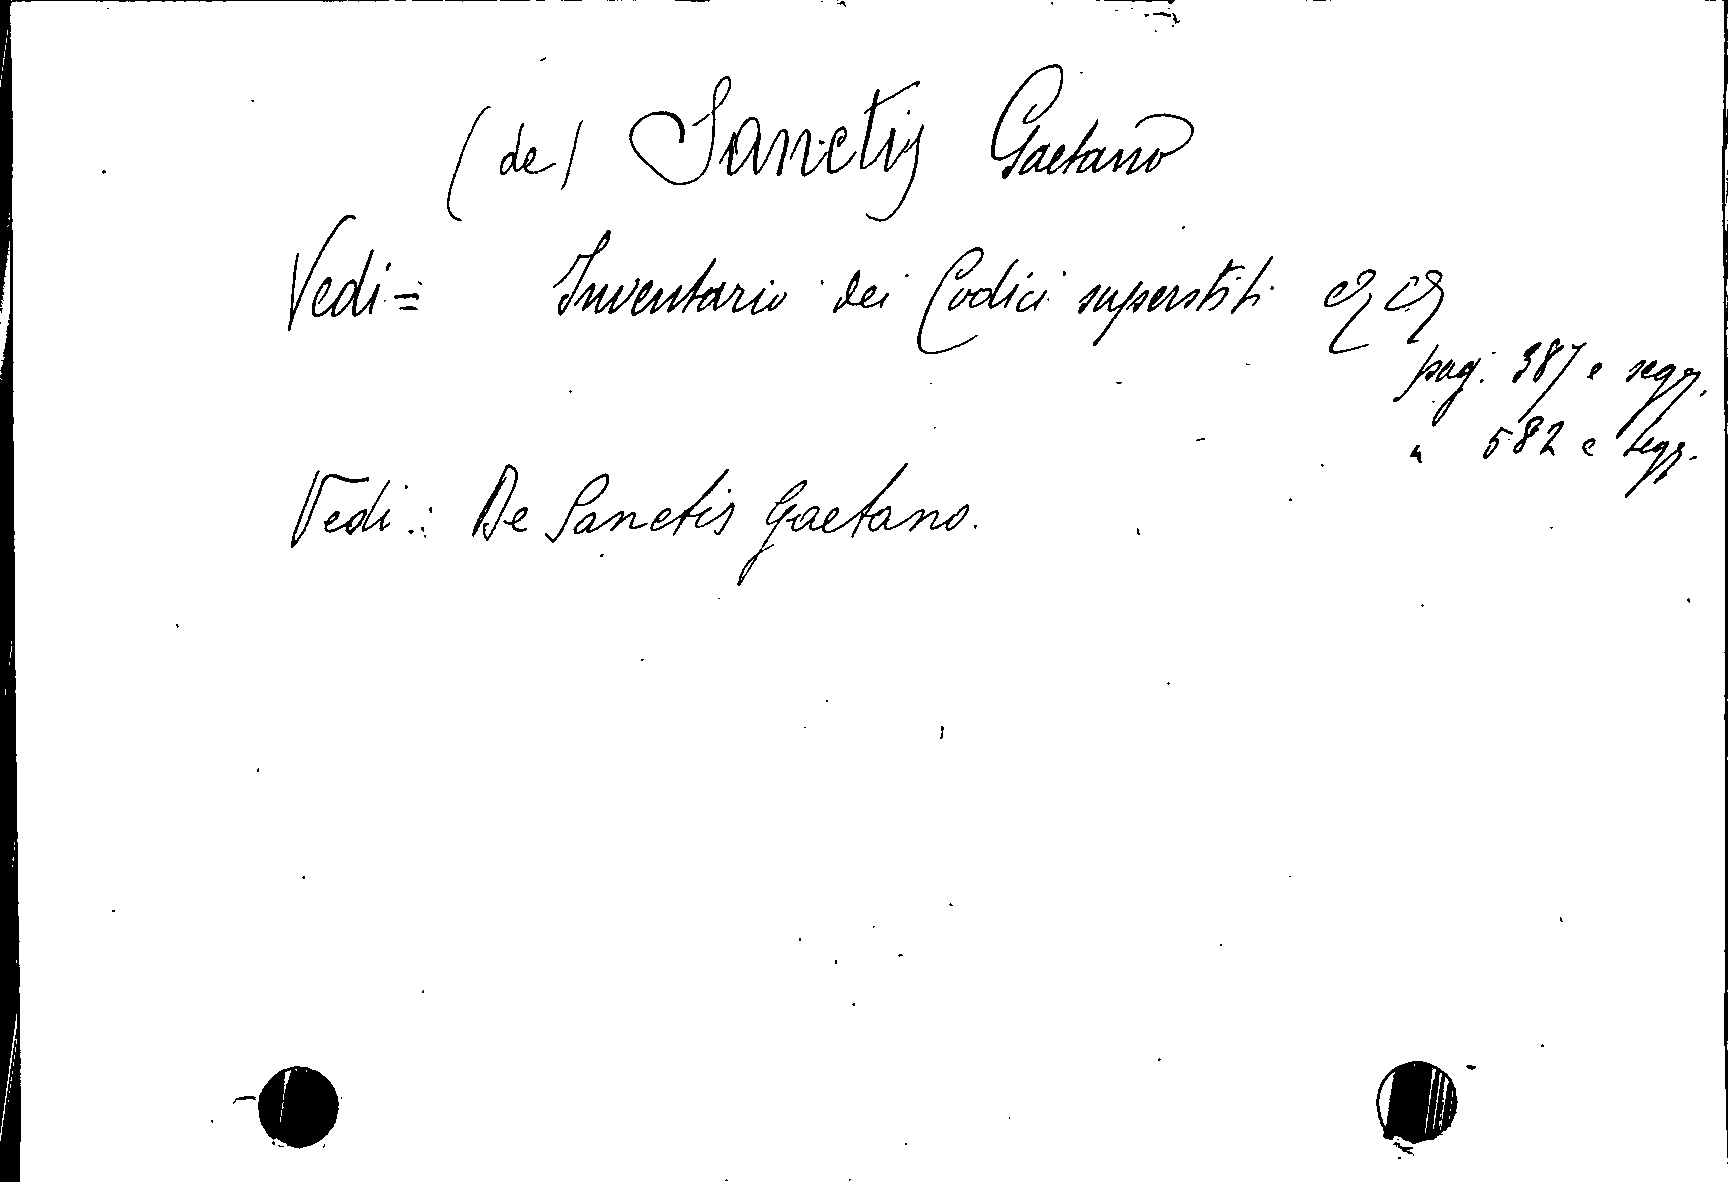 (de) Sanctis Gaetano
Vedi = Inventario dei Codici superstiti
pag. 387 e segg.
" 582 e segg.
Vedi: De Sanctis Gaetano.